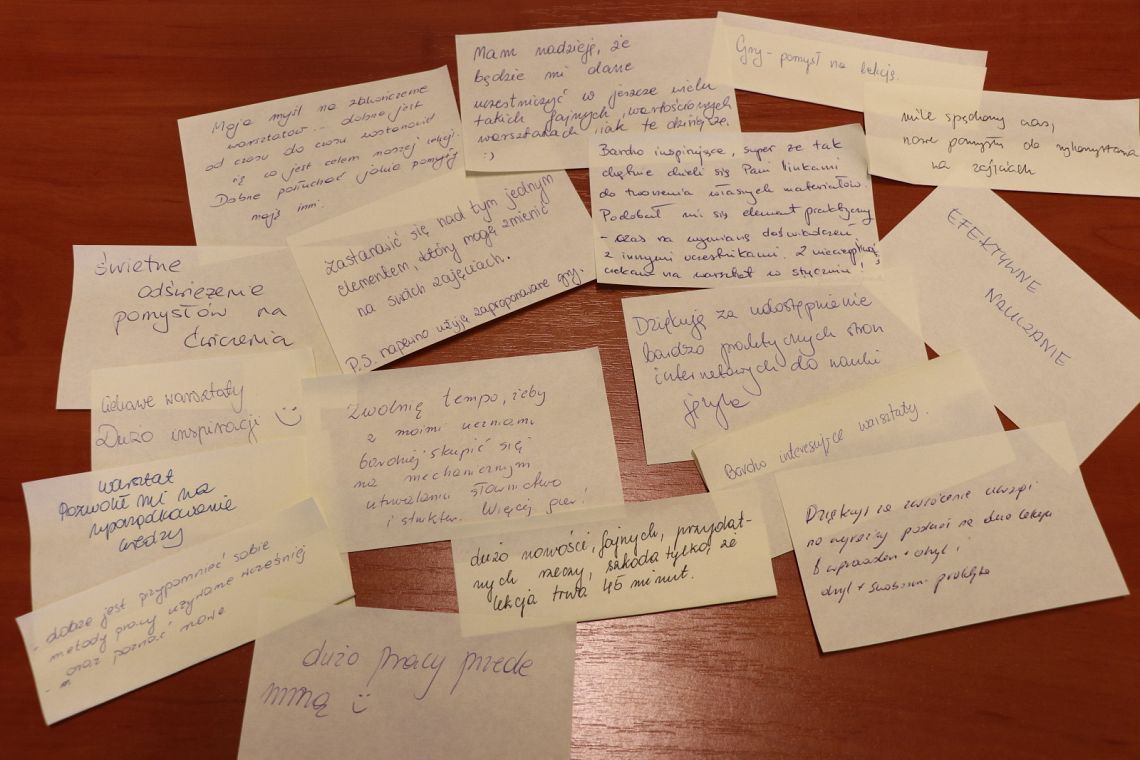 Moja myśl na zakończenie
warsztatów - dobrze jest
od czasu do czasu zastanowić
się co jest celem naszej lekcji.
Dobrze posłuchać jakie pomysły
mają inni.
Mam nadzieję, że
będzie mi dane
uczestniczyć w jeszcze wielu
takich fajnych, wartościowych
warsztatach jak te dzisiejsze.
:)
Gry - pomysł na lekcję.
mile spędzony czas,
nowe pomysły do wykorzystania
na zajęciach
Bardzo inspirujące, super że tak
chętnie dzieli się Pani linkami
do tworzenia własnych materiałów.
Podobał mi się element praktyczny
- czas na wymianę doświadczeń
z innymi uczestnikami. Z niecierpliwością
czekam na warsztat w styczniu!
Zastanowić się nad tym jednym
elementem, który mogę zmienić
na swoich zajęciach.
P.S. napewno użyję zaproponowane gry.
Świetne
odświeżenie
pomysłów na
ćwiczenia
EFEKTYWNE
NAUCZANIE
Dziękuję za udostępnienie
bardzo praktycznych stron
internetowych do nauki
języka
Ciekawe warsztaty
Dużo inspiracji :)
Zwolnię tempo, żeby
z moimi uczniami
bardziej skupić się
na mechanicznym
utrwalaniu słownictwa
i struktur. Więcej gier!
Bardzo interesujące warsztaty.
warsztat
Pozwolił mi na
uporządkowanie
wiedzy
dużo nowości, fajnych, przydat-
nych rzeczy, szkoda tylko, że
lekcja trwa 45 minut.
Dziękuję za zwrócenie uwagi
na wyraźny podział na dwie lekcje
wprowadzen + dryl,
dryl + swobodna praktyka
- dobrze jest przypomnieć sobie
metody pracy używane wcześniej
- oraz poznać nowe
dużo pracy przede
mną :)